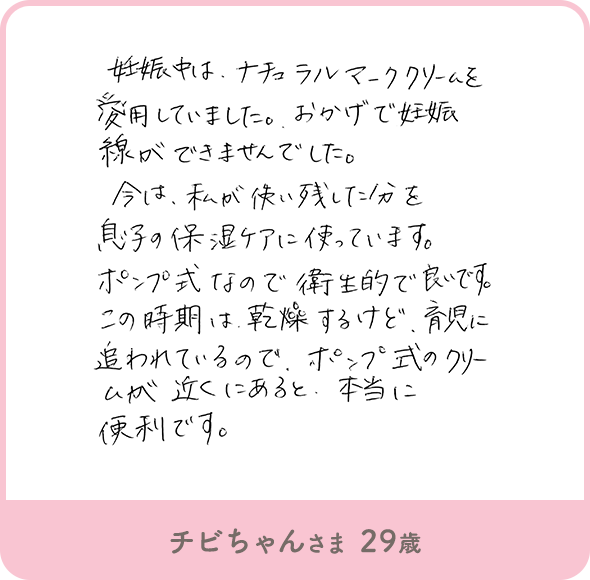 妊娠中は、ナチュラルマーククリームを
愛用していました。おかげで妊娠
線ができませんでした。
今は、私が使い残した分を
息子の保湿ケアに使っています。
ポンプ式なので衛生的で良いです。
この時期は、乾燥するけど、育児に
追われているので、ポンプ式のクリー
ムが近くにあると、本当に
便利です。
チビちゃんさま 29歳